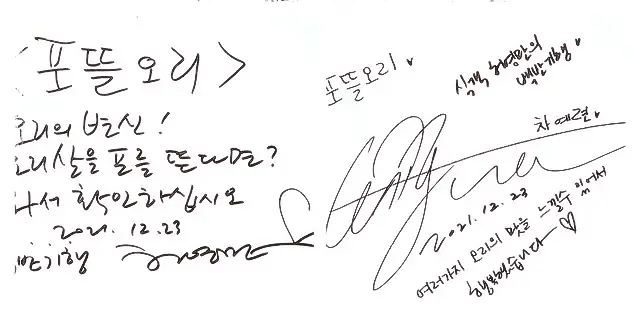 <포뜰오리>
오리의 변신!
오리살을 포를 뜬다면?
와서 확인하십시오
2021. 12. 23
백반기행
포뜰오리
식객 허영만의
백반기행
차예련
2021. 12. 23
여러가지 오리의 맛을 느낄수 있어서
행복했습니다